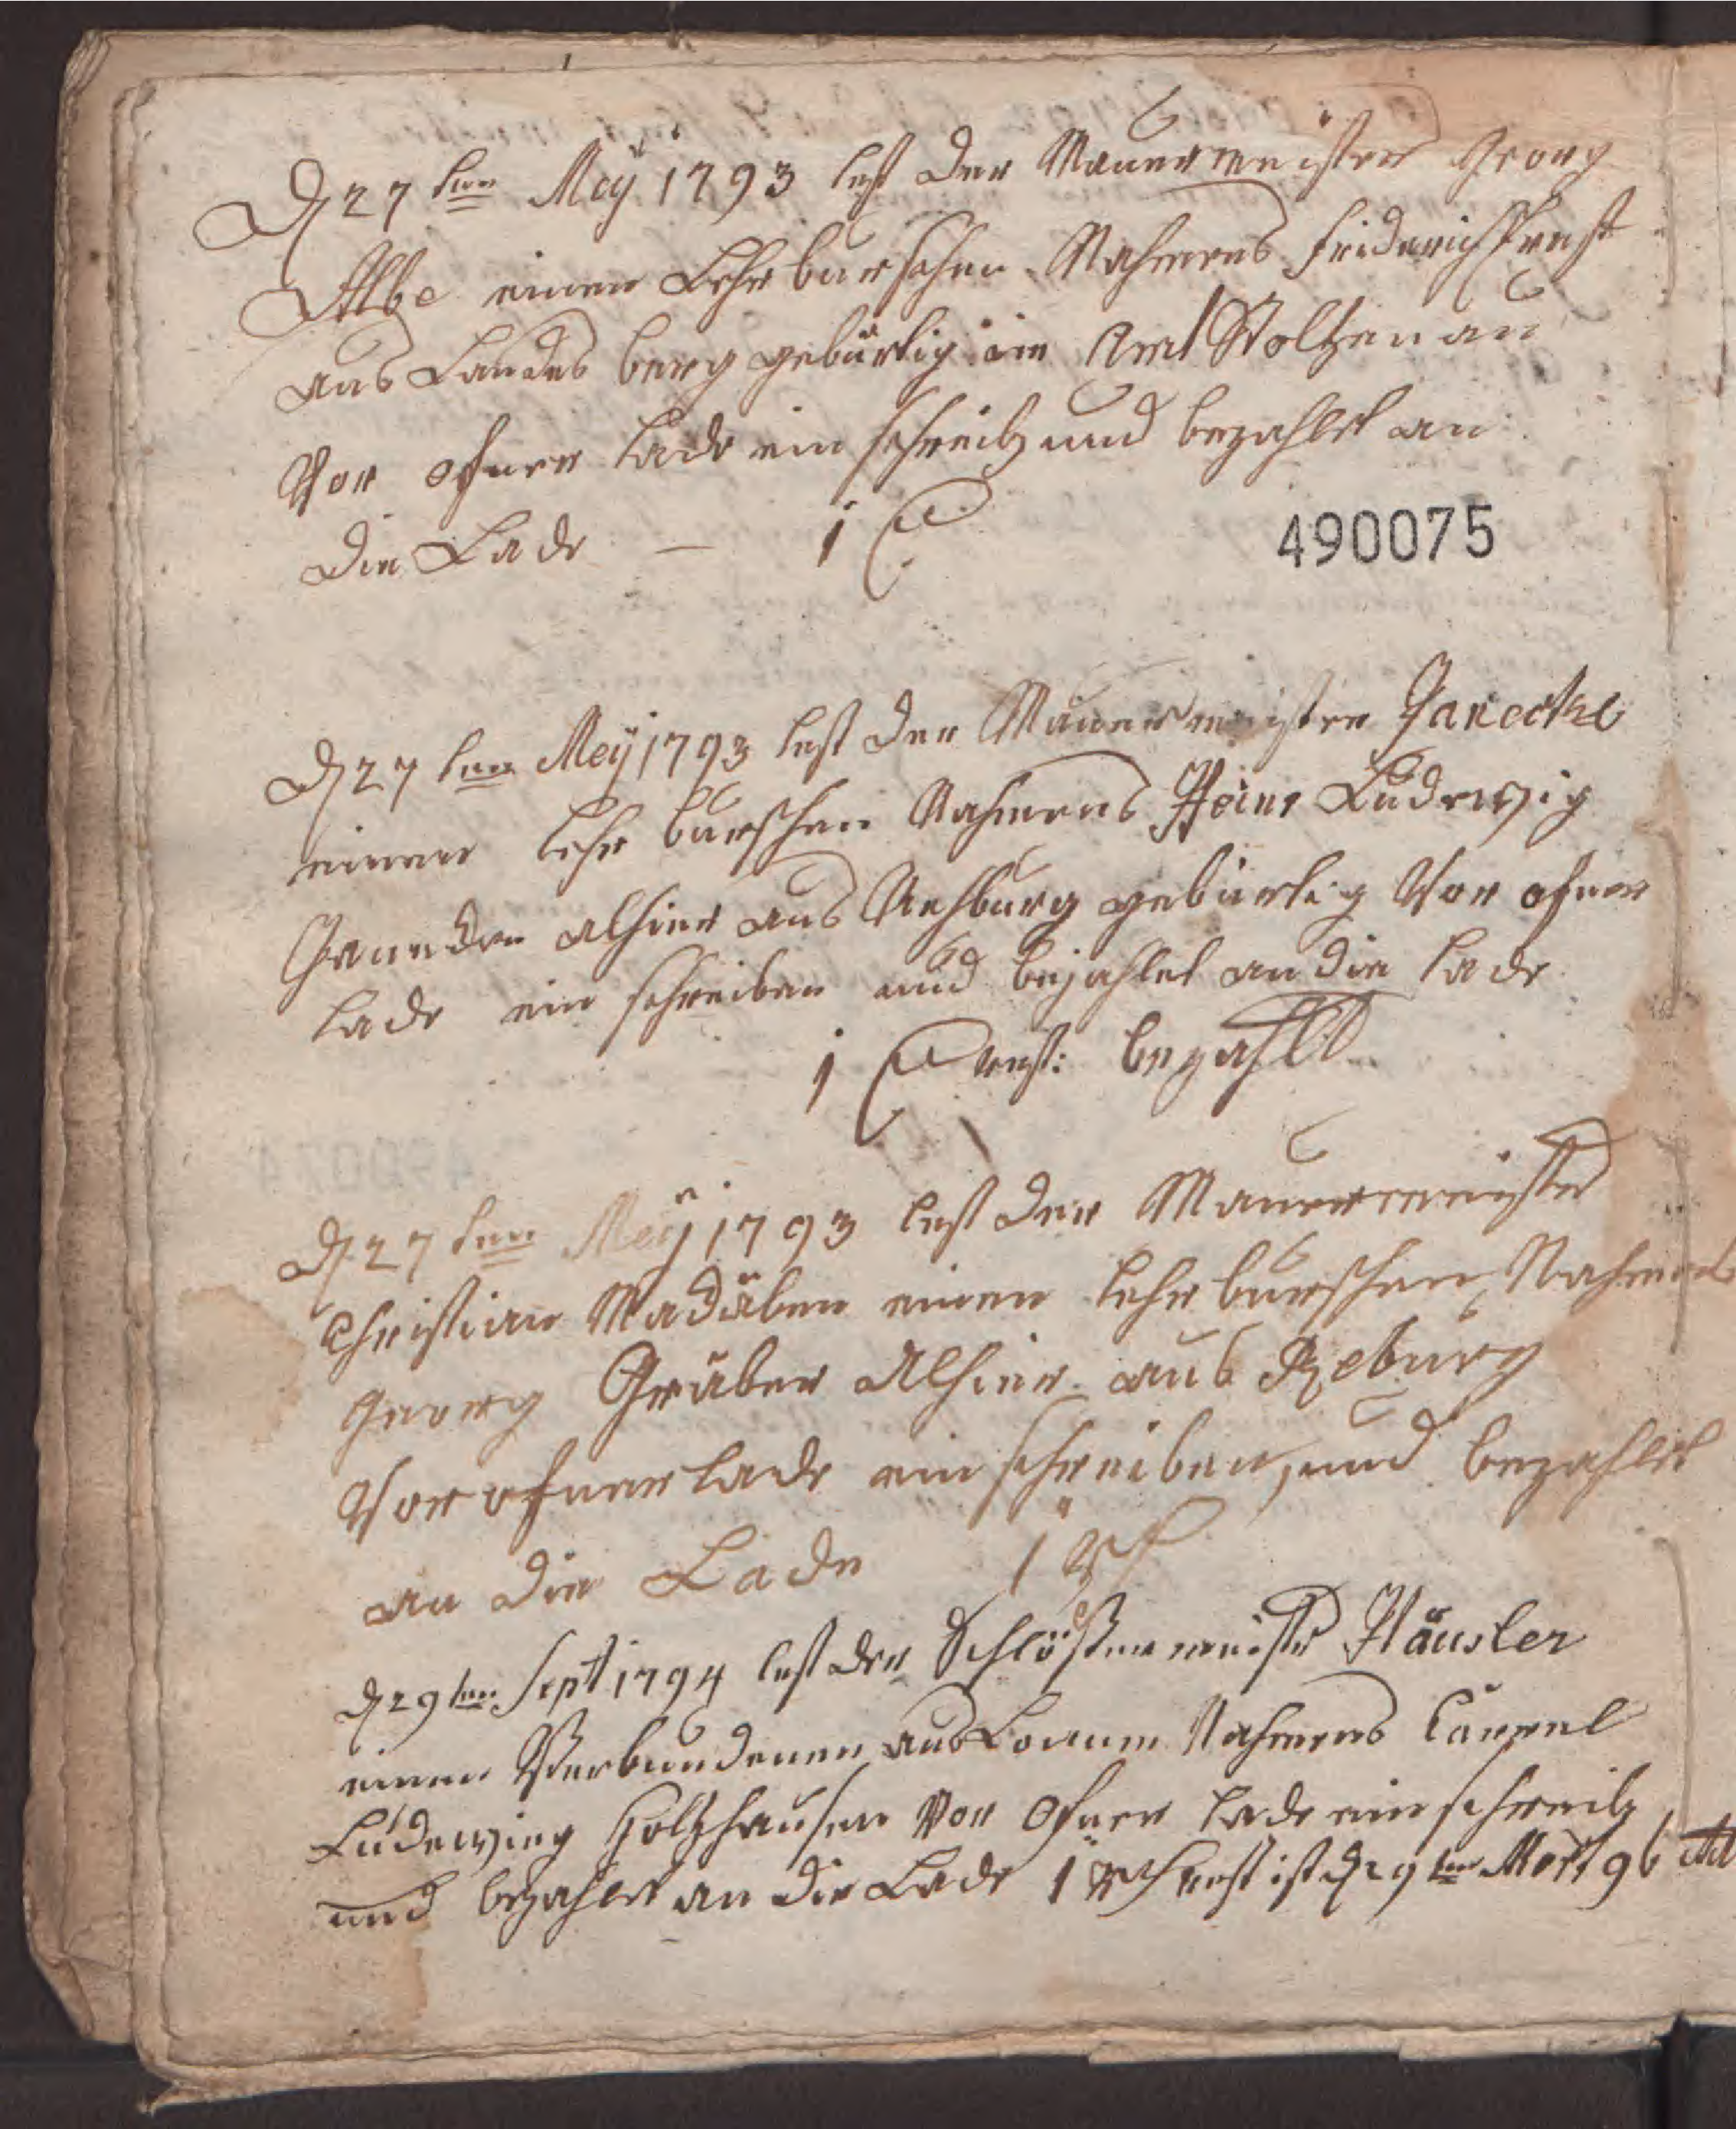 D 27ten Meÿ 1793 lest der Mauermeister Georg
Albe einen Lehrburschen Nahmens Friderich Prast
aus Landesberg gebürtig im Amt Stoltzenau
Vor ofner lade ein schreib und bezahlet an
die Lade — 1
490075
D 27ten Meÿ 1793 lest der Mauermeister Janecke
einen Lehr burschen Nahmens Heinr Ludewig
alhier aus Rehburg gebürtig Vor ofner
lade ein schreiben und bezahlet an die lade
1 rest: bezahlt
D 27ten Meÿ 1793 lest der Mauermeister
Christian einen Lehr burschen Nahmens
Georg Gräber Alhier aus Reburg
Vor ofner lade ein schreiben, und bezahlet
an die Lade 1 rth
D 29ten Sept 1794 lest der Schlößermeister Häusler
einen Verbundenen aus Locum Nahmens Carrel
Ludewieg Holtzhausen Vor Ofner lade ein schreib
und bezahlet an die Lade 1 rth rest ist D 29ten 96